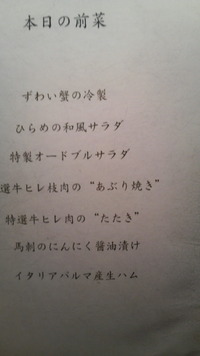 本日の前菜
ずわい蟹の冷製
ひらめの和風サラダ
特製オードブルサラダ
選牛ヒレ枝肉の“あぶり焼き”
特選牛ヒレ肉の“たたき”
馬刺のにんにく醤油漬け
イタリアパルマ産生ハム